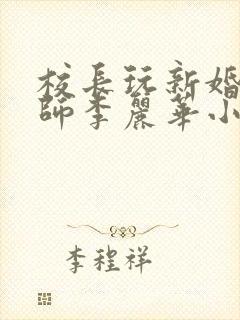 校長玩新婚
師李麗華小
李程祥